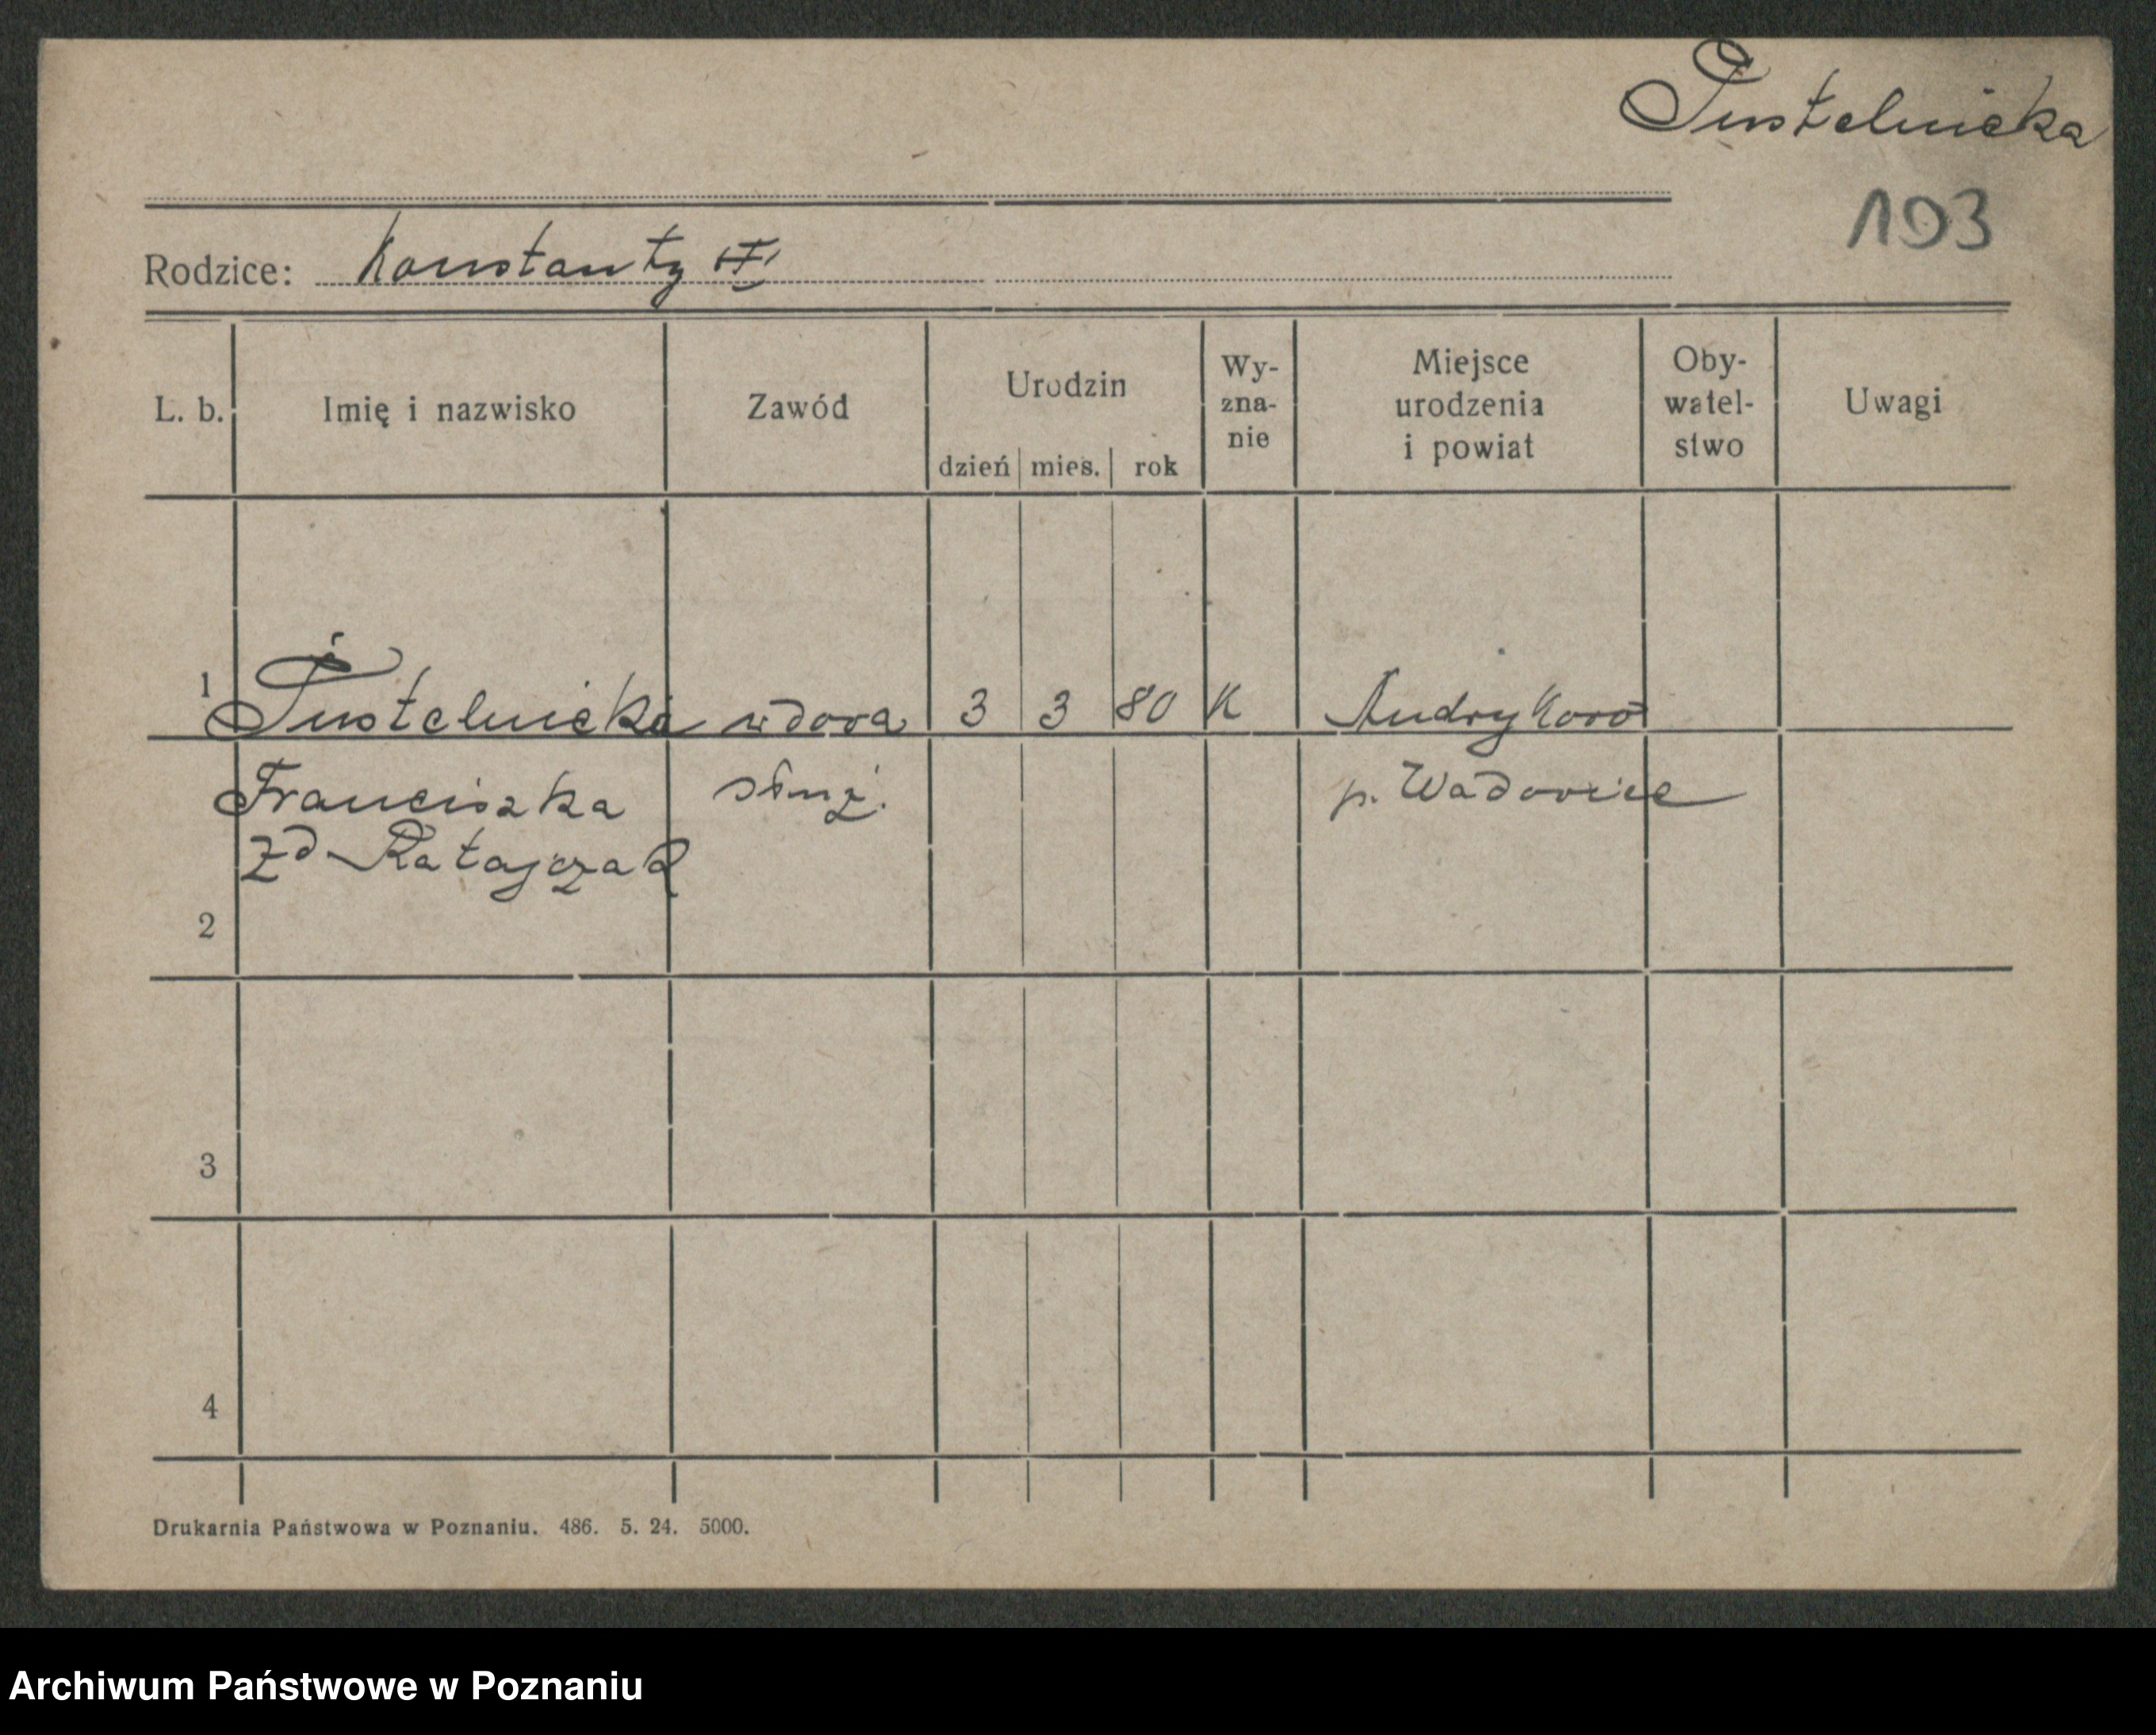 Pustelnicka
193
Rodzice: Konstanty
L. b. Imię i nazwisko Zawód Urodzin dzień mies. rok Wy-zna-nie Miejsce urodzenia i powiat Oby-watel-stwo Uwagi
1 Pustelnicka wdowa 3 3 80 K Andrykow
Franciszka służ. p. Wadowice
zd Ratajczak
2
3
4
Drukarnia Państwowa w Poznaniu. 486. 5. 24. 5000.
Archiwum Państwowe w Poznaniu